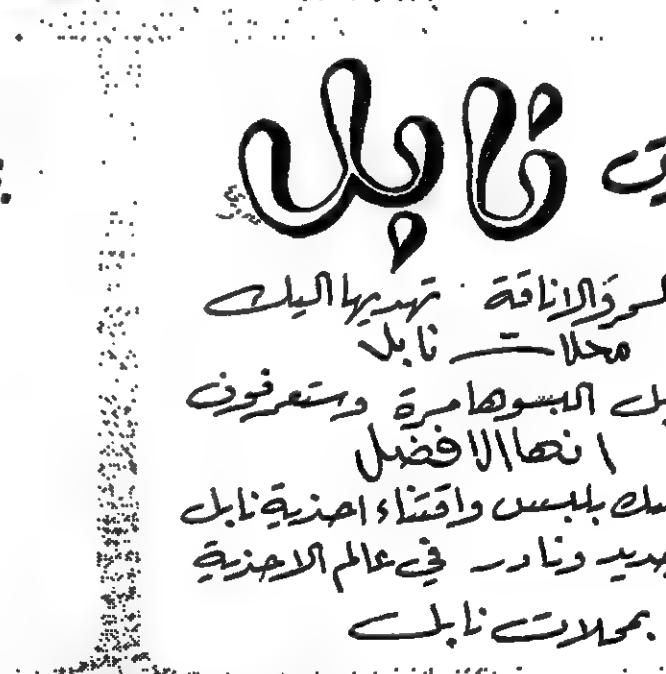 نابل
والاناقة تهديها اليك
محلات نابل
البسوها مرة وستعرفون
انها الافضل
بلبس واقتناء احذية نابل
ونادر في عالم الاحذية
بمحلات نابل